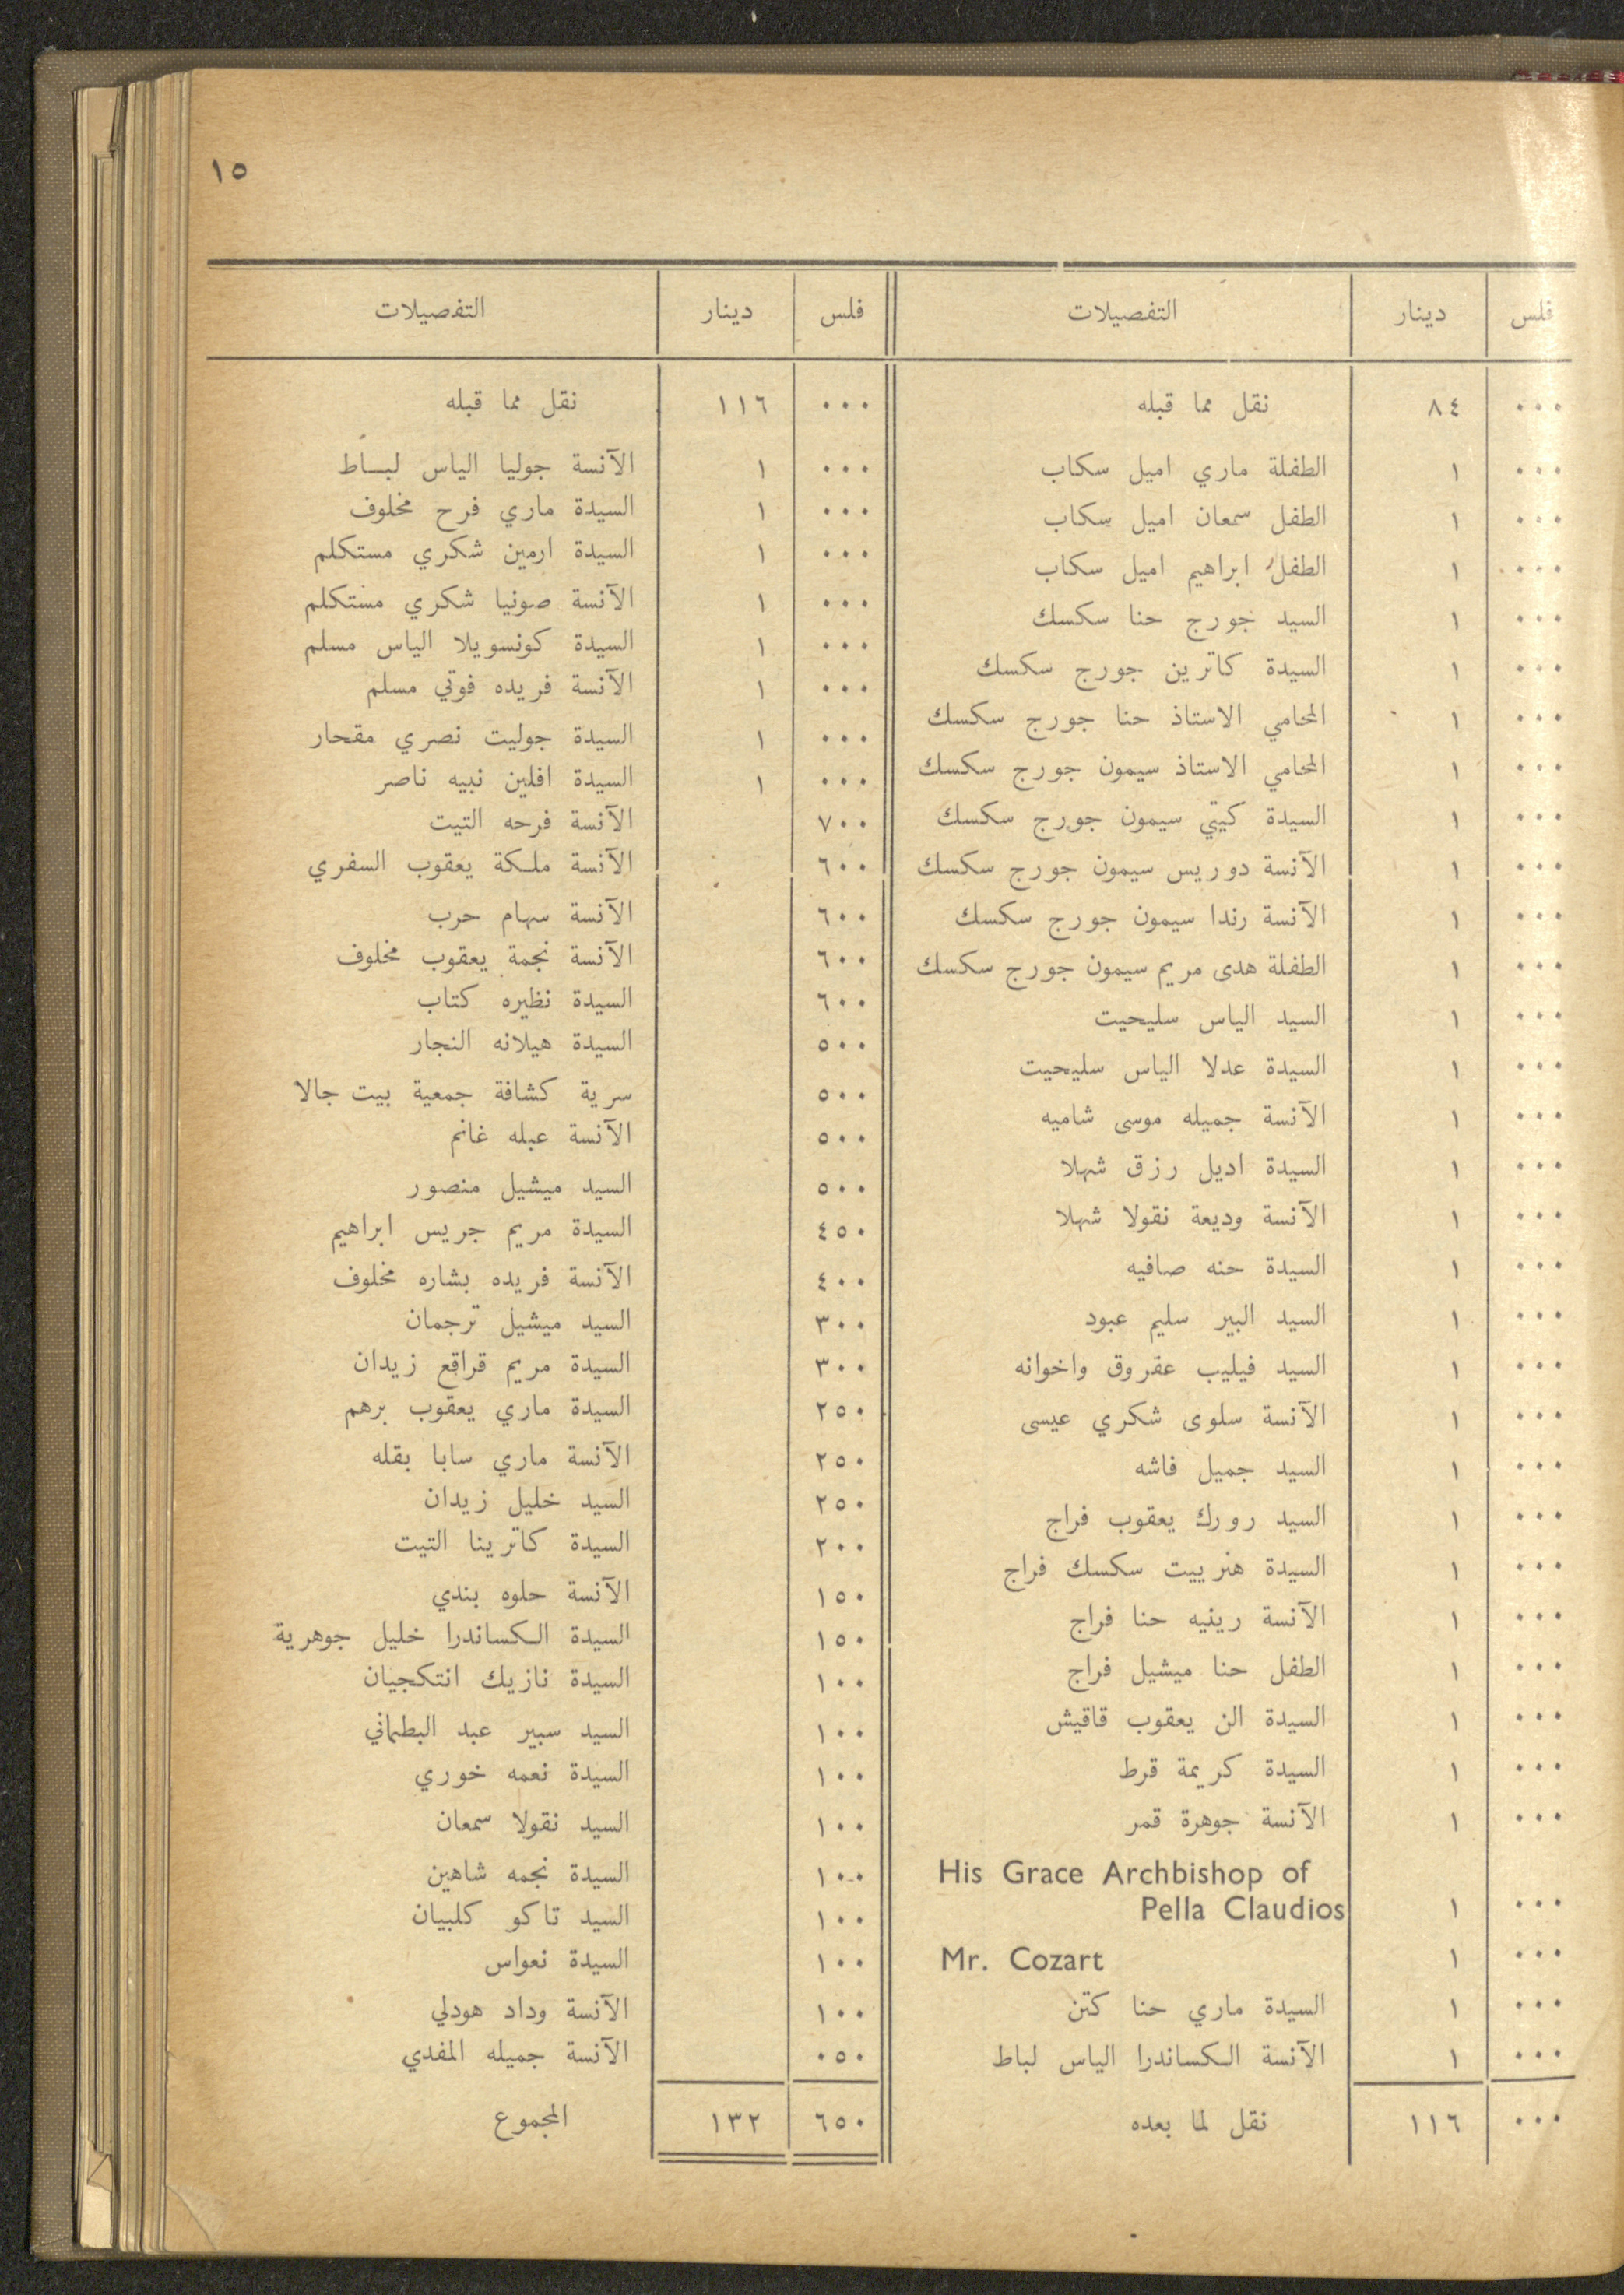 ١٥
فلس دينار التفصيلات
٠٠٠ ٨٤ نقل مما قبله
٠٠٠ ١ الطفلة ماري اميل سكاب
٠٠٠ ١ الطفل سمعان اميل سكاب
٠٠٠ ١ الطفل ابراهيم اميل سكاب
٠٠٠ ١ السيد جورج حنا سكسك
٠٠٠ ١ السيدة كاترين جورج سكسك
٠٠٠ ١ المحامي الاستاذ حنا جورج سكسك
٠٠٠ ١ المحامي الاستاذ سيمون جورج سكسك
٠٠٠ ١ السيدة كيتي سيمون جورج سكسك
٠٠٠ ١ الآنسة دوريس سيمون جورج سكسك
٠٠٠ ١ الآنسة رندا سيمون جورج سكسك
٠٠٠ ١ الطفلة هدى مريم سيمون جورج سكسك
٠٠٠ ١ السيد الياس سليحيت
٠٠٠ ١ السيدة عدلا الياس سليحيت
٠٠٠ ١ الآنسة جميله موسى شاميه
٠٠٠ ١ السيدة اديل رزق شهلا
٠٠٠ ١ الآنسة وديعة نقولا شهلا
٠٠٠ ١ السيدة حنه صافيه
٠٠٠ ١ السيد البير سليم عبود
٠٠٠ ١ السيد فيليب عقروق واخوانه
٠٠٠ ١ الآنسة سلوى شكري عيسى
٠٠٠ ١ السيد جميل فاشه
٠٠٠ ١ السيد رورك يعقوب فراج
٠٠٠ ١ السيدة هنرييت سكسك فراج
٠٠٠ ١ الآنسة رينيه حنا فراج
٠٠٠ ١ الطفل حنا ميشيل فراج
٠٠٠ ١ السيدة الن يعقوب قاقيش
٠٠٠ ١ السيدة كريمة قرط
٠٠٠ ١ الآنسة جوهرة قمر
His Grace Archbishop of
٠٠٠ ١ Pella Claudios
٠٠٠ ١ Mr. Cozart
٠٠٠ ١ السيدة ماري حنا كتن
٠٠٠ ١ الآنسة الكساندرا الياس لباط
٠٠٠ ١١٦ نقل لما بعده
فلس دينار التفصيلات
٠٠٠ ١١٦ نقل مما قبله
٠٠٠ ١ الآنسة جوليا الياس لباط
٠٠٠ ١ السيدة ماري فرح مخلوف
٠٠٠ ١ السيدة ارمين شكري مستكلم
٠٠٠ ١ الآنسة صونيا شكري مستكلم
٠٠٠ ١ السيدة كونسويلا الياس مسلم
٠٠٠ ١ الآنسة فريده فوتي مسلم
٠٠٠ ١ السيدة جوليت نصري مقحار
٠٠٠ ١ السيدة افلين نبيه ناصر
٧٠٠ الآنسة فرحه التيت
٦٠٠ الآنسة ملكة يعقوب السفري
٦٠٠ الآنسة سهام حرب
٦٠٠ الآنسة نجمة يعقوب مخلوف
٦٠٠ السيدة نظيره كتاب
٥٠٠ السيدة هيلانه النجار
٥٠٠ سرية كشافة جمعية بيت جالا
٥٠٠ الآنسة عبله غانم
٥٠٠ السيد ميشيل منصور
٤٥٠ السيدة مريم جريس ابراهيم
٤٠٠ الآنسة فريده بشاره مخلوف
٣٠٠ السيد ميشيل ترجمان
٣٠٠ السيدة مريم قراقع زيدان
٢٥٠ السيدة ماري يعقوب برهم
٢٥٠ الآنسة ماري سابا بقله
٢٥٠ السيد خليل زيدان
٢٠٠ السيدة كاترينا التيت
١٥٠ الآنسة حلوه بندي
١٥٠ السيدة الكساندرا خليل جوهرية
١٠٠ السيدة نازيك انتكجيان
١٠٠ السيد سبير عبد البطماني
١٠٠ السيدة نعمه خوري
١٠٠ السيد نقولا سمعان
١٠٠ السيدة نجمه شاهين
١٠٠ السيد تاكو كلبيان
١٠٠ السيدة نعواس
١٠٠ الآنسة وداد هودلي
٠٥٠ الآنسة جميله المفدي
٦٥٠ ١٣٢ المجموع